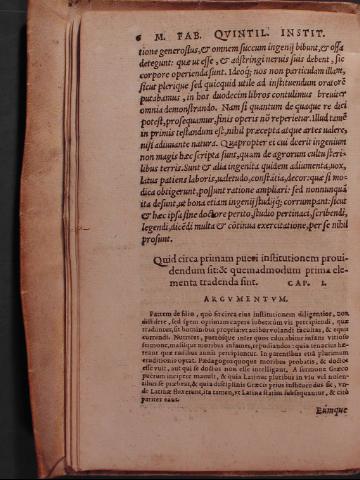 6 M. FAB. QVINTIL. INSTIT.
tione generosius, & omnem succum ingenij bibunt, & ossa
detegunt: quæ ut esse, & adstringi neruis suis debent, sic
corpore operienda sunt. Ideoq; nos non particulam illam,
sicut plerique sed quicquid utile ad instituendum oratorē
putabamus, in hos duodecim libros contulimus breuiter
omnia demonstrando. Nam si quantum de quaque re dici
potest, prosequamur, finis operis nō reperietur. Illud tamē
in primis testandum est, nihil præcepta atque artes ualere,
nisi adiuuante natura. Quapropter ei cui deerit ingenium
non magis hæc scripta sunt, quam de agrorum cultu steri-
libus terris. Sunt & alia ingenita quidem adiumenta, uox,
latus patiens laboris, ualetudo, constātia, decor: quæ si mo-
dica obtigerunt, possunt ratione ampliari: sed nonnunquā
ita desunt, ut bona etiam ingenij studijq; corrumpant: sicut
& hæc ipsa sine doctore perito, studio pertinaci, scribendi,
legendi, dicēdi multa & cōtinua exercitatione, per se nihil
prosunt.
Quid circa primam pueri institutionem proui-
dendum sit: & quemadmodum prima ele-
menta tradenda sint. CAP. I.
ARGVMENTVM.
Patrem de filio, quò fit circa eius institutionem diligentior, non
diffidere, sed spem optimam capere iubet: cùm vis percipiendi, quæ
traduntur, sit hominibus propria: vt aui bus volandi facultas, & equis
currendi. Nutrices, puerósque inter quos educabitur infans vitioso
sermone, malisque moribus infantes, repudiandos: quia tenacius hæ-
reant quæ rudibus annis percipiuntur. In parentibus etiā plurimum
eruditionis optat. Pædagogos quoque moribus probatis, & doctos
esse vult, aut qui se doctos non esse intelligant. A sermone Græco
puerum incipere mauult, & quia Latinus pluribus in vsu vel nolen-
tibus se præbeat, & quia disciplinis Græcis prius instituendus sic, vn-
de Latinæ fluxerunt, ita tamen, vt Latina statim subsequantur, & citò
pariter eant.
Eúmque